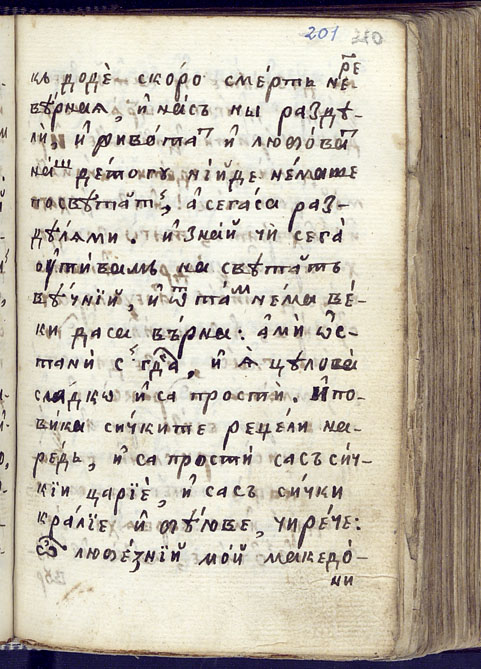 201
къ додѐ ско́ро сме́рть не
вѣ́рнаꙗ, и҆ на́съ ны раздѣ-
лѝ, и҆ живо́таⷮ и҆ любо́ваⷮ
на́ⷲ дѣ́тогу нїи́де не́маше
посвѣ́татъ, а҆сега́са раз-
дѣлꙗми. и҆ зна́й чѝ сега̀
ѿти́вамъ на свѣ́татъ
вѣ́чнїй, и҆ ѿта́ⷨ не́ма ве́-
ки даса въ́рна: а҆мѝ ѡ҆с-
танѝ с̾ гд҃а, и҆ ѧ҆ цѣ́лова
сла́дкѡ и҆ са прости. И҆по-
ви́ка си́чките реце́ли на-
ре́дъ, и҆ са прости са́съ си́ч-
кїи царїѐ, и҆ са́съ си́чки
кра́лїе и҆ бѣ́юве, чире́че:
ѽ любе́знїй мо́й македо́-
ни